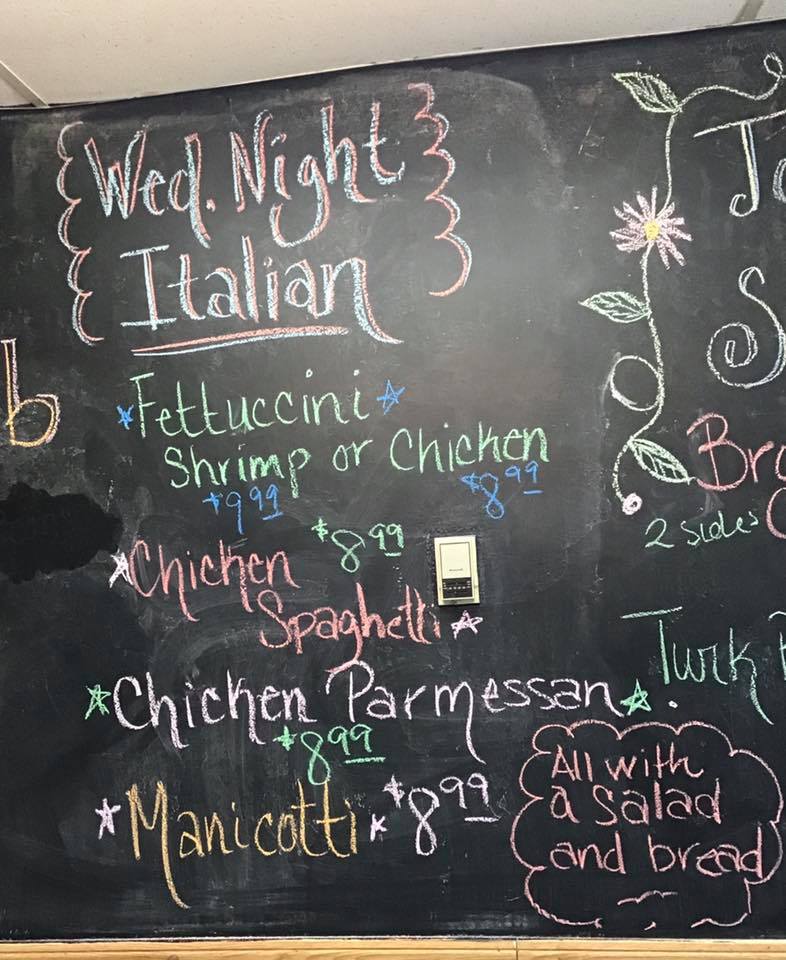 Wed. Night
Italian
b
Fettuccini
Shrimp or Chicken
$9.99 $8.99
Chicken $8.99
Spaghetti
Chicken Parmessan
$8.99
Manicotti $8.99
All with
a salad
and bread
2 sides
Turk